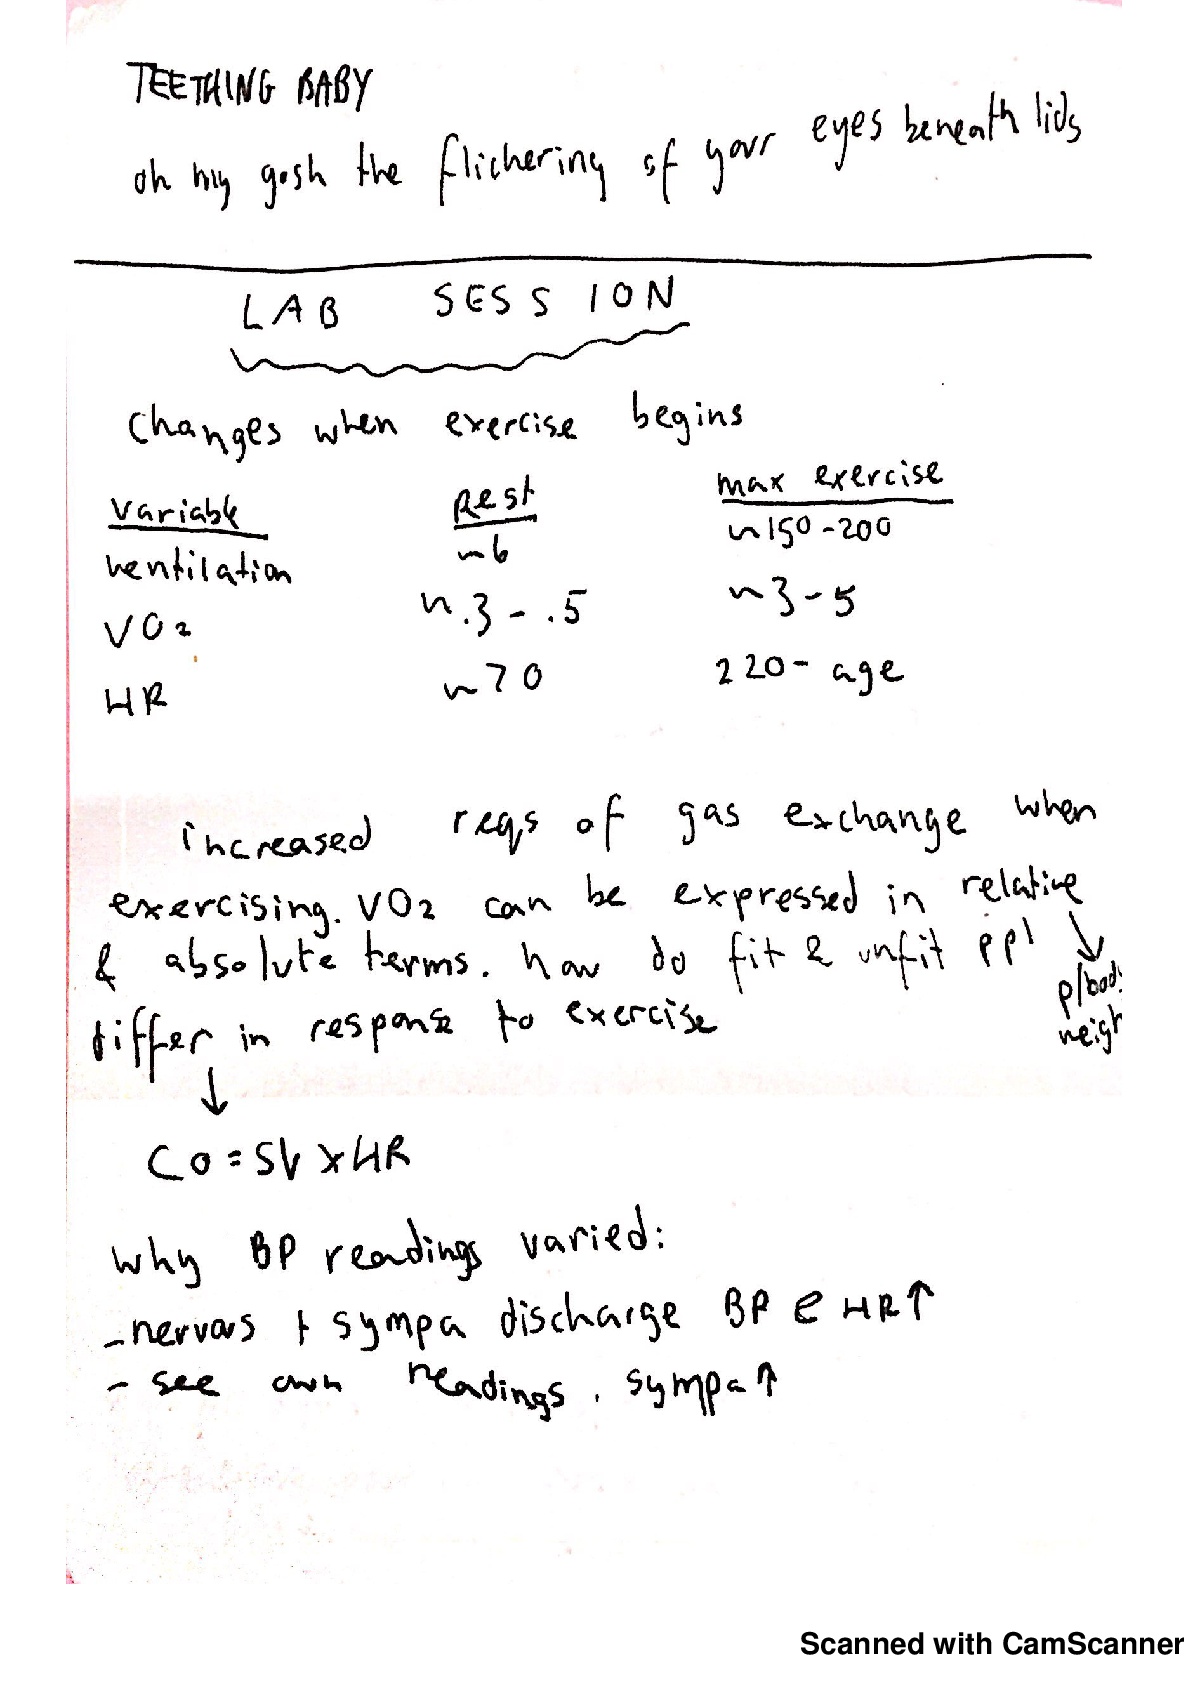 TEETHING BABY
oh my gosh the flickering of your eyes beneath lids
LAB SESSION
Changes when exercise begins
Variable Rest max exercise
ventilation ~6 ~150-200
VO2 ~.3 - .5 ~3-5
HR ~70 220- age
increased reqs of gas exchange when
exercising. VO2 can be expressed in relative
& absolute terms. how do fit & unfit ppl
p/body
weigh
differ in response to exercise
↓
CO = SV x HR
why BP readings varied:
- nervous + sympa discharge BP & HR↑
- see own readings. sympa↑
Scanned with CamScanner